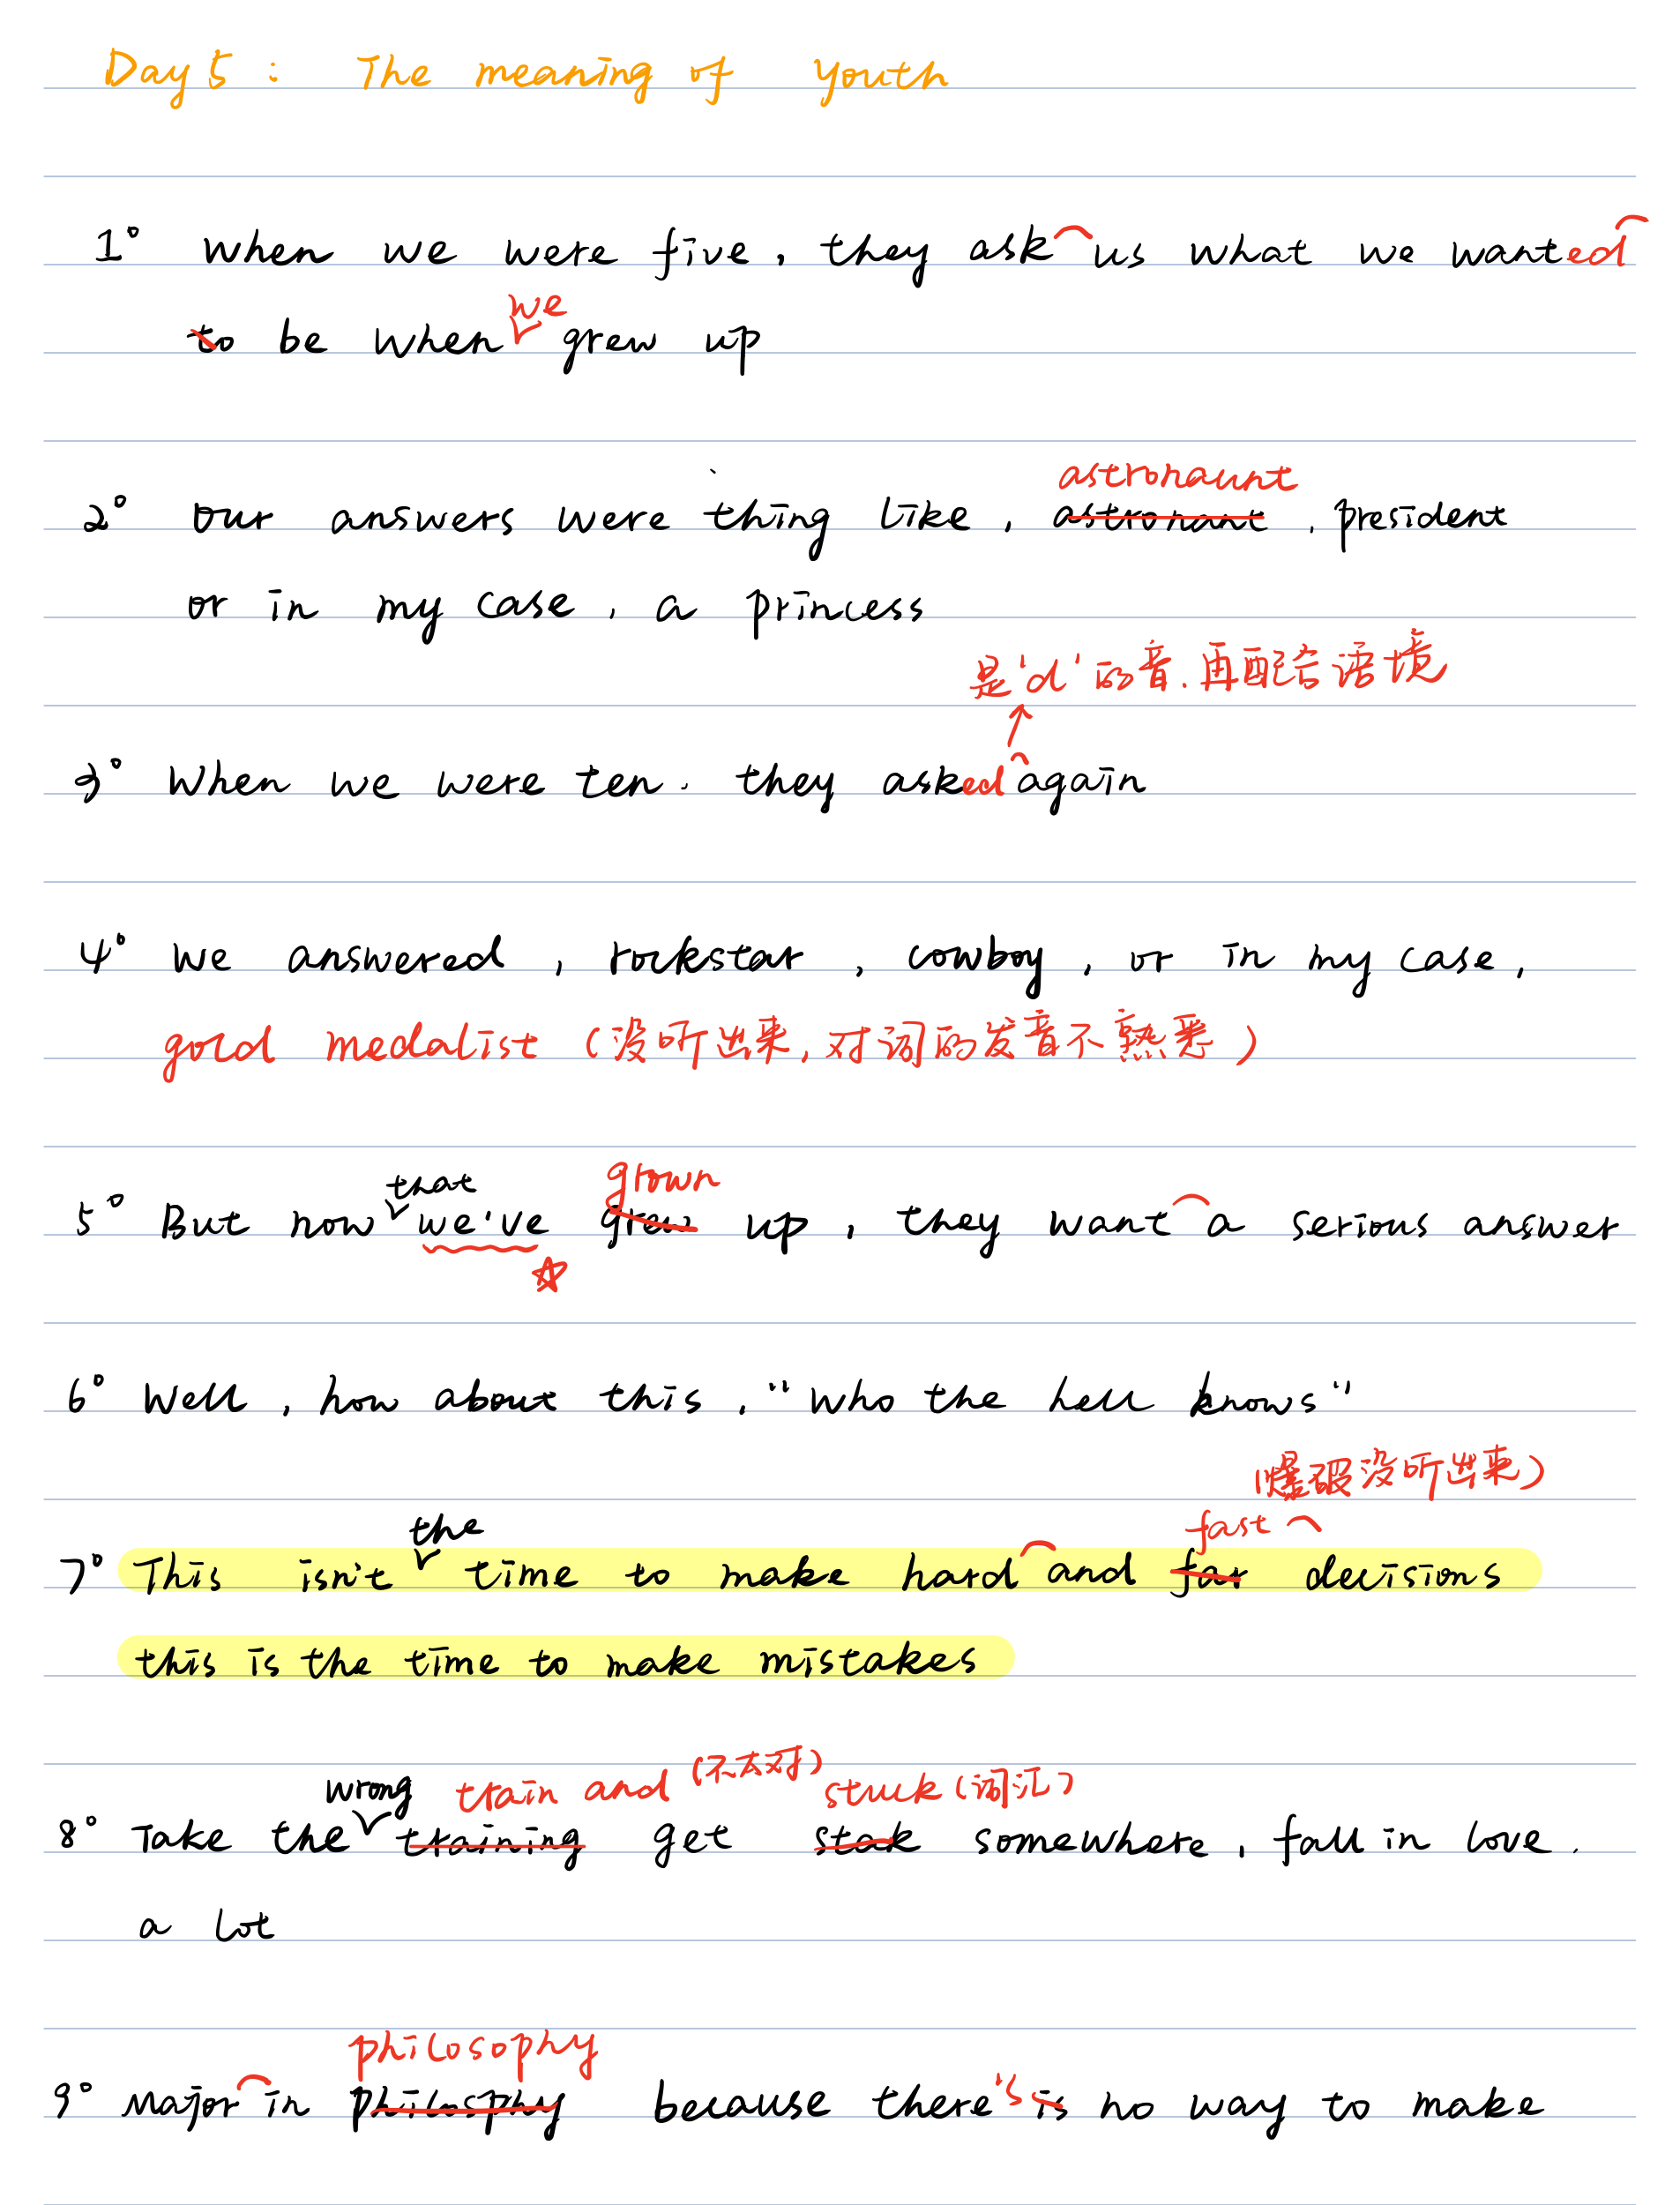 Day 5 : The meaning of Youth
1° When we were five, they ask us what we wanted
we
to be when grew up
astronaunt
2° Our answers were thing like, astronant, president
or in my case, a princess
是'd'的音.再配合语境
3° When we were ten. they asked again
4° We answered, rockstar, cowboy, or in my case,
gold medalist (没听出来,对词的发音不熟悉)
that grown
5° But now we've grew up, they want a serious answer
6° Well, how about this, "who the hell knows"
(爆破没听出来)
the fast
7° This isn't time to make hard and far decisions
this is the time to make mistakes
wrong train and (不太对) stuck (词汇)
8° Take the training get stak somewhere, fall in love.
a lot
philosophy
9° Major in philosphy because there's is no way to make